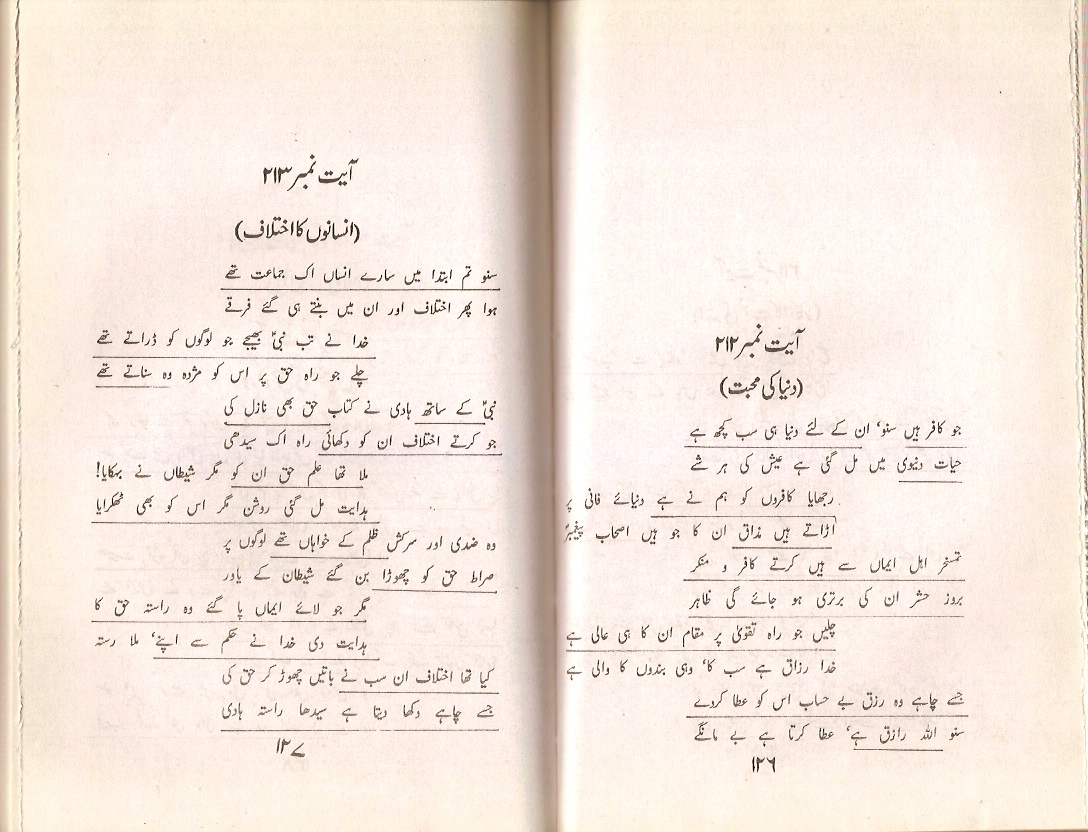 آیت نمبر ۲۱۲
(دنیا کی محبت)
جو کافر ہیں سنو‘ ان کے لئے دنیا ہی سب کچھ ہے
حیات دنیوی میں مل گئی ہے عیش کی ہر شے
رجھایا کافروں کو ہم نے ہے دنیائے فانی پر
اڑاتے ہیں مذاق ان کا جو ہیں اصحاب پیغمبرؐ
تمسخر اہل ایماں سے ہیں کرتے کافر و منکر
بروز حشر ان کی برتری ہو جائے گی ظاہر
چلیں جو راہ تقویٰ پر مقام ان کا ہی عالی ہے
خدا رزاق ہے سب کا‘ وہی بندوں کا والی ہے
جسے چاہے وہ رزق بے حساب اس کو عطا کردے
سنو اللہ رازق ہے‘ عطا کرتا ہے بے مانگے
۱۲۶
آیت نمبر ۲۱۳
(انسانوں کا اختلاف)
سنو تم ابتدا میں سارے انساں اک جماعت تھے
ہوا پھر اختلاف اور ان میں بنتے ہی گئے فرقے
خدا نے تب نبیؑ بھیجے جو لوگوں کو ڈراتے تھے
چلے جو راہ حق پر اس کو مژدہ وہ سناتے تھے
نبیؑ کے ساتھ ہادی نے کتاب حق بھی نازل کی
جو کرتے اختلاف ان کو دکھائی راہ اک سیدھی
ملا تھا علم حق ان کو مگر شیطاں نے بہکایا!
ہدایت مل گئی روشن مگر اس کو بھی ٹھکرایا
وہ ضدی اور سرکش ظلم کے خواہاں تھے لوگوں پر
صراط حق کو چھوڑا بن گئے شیطان کے یاور
مگر جو لائے ایماں پا گئے وہ راستہ حق کا
ہدایت دی خدا نے حکم سے اپنے‘ ملا رستہ
کیا تھا اختلاف ان سب نے باتیں چھوڑ کر حق کی
جسے چاہے دکھا دیتا ہے سیدھا راستہ ہادی
۱۲۷